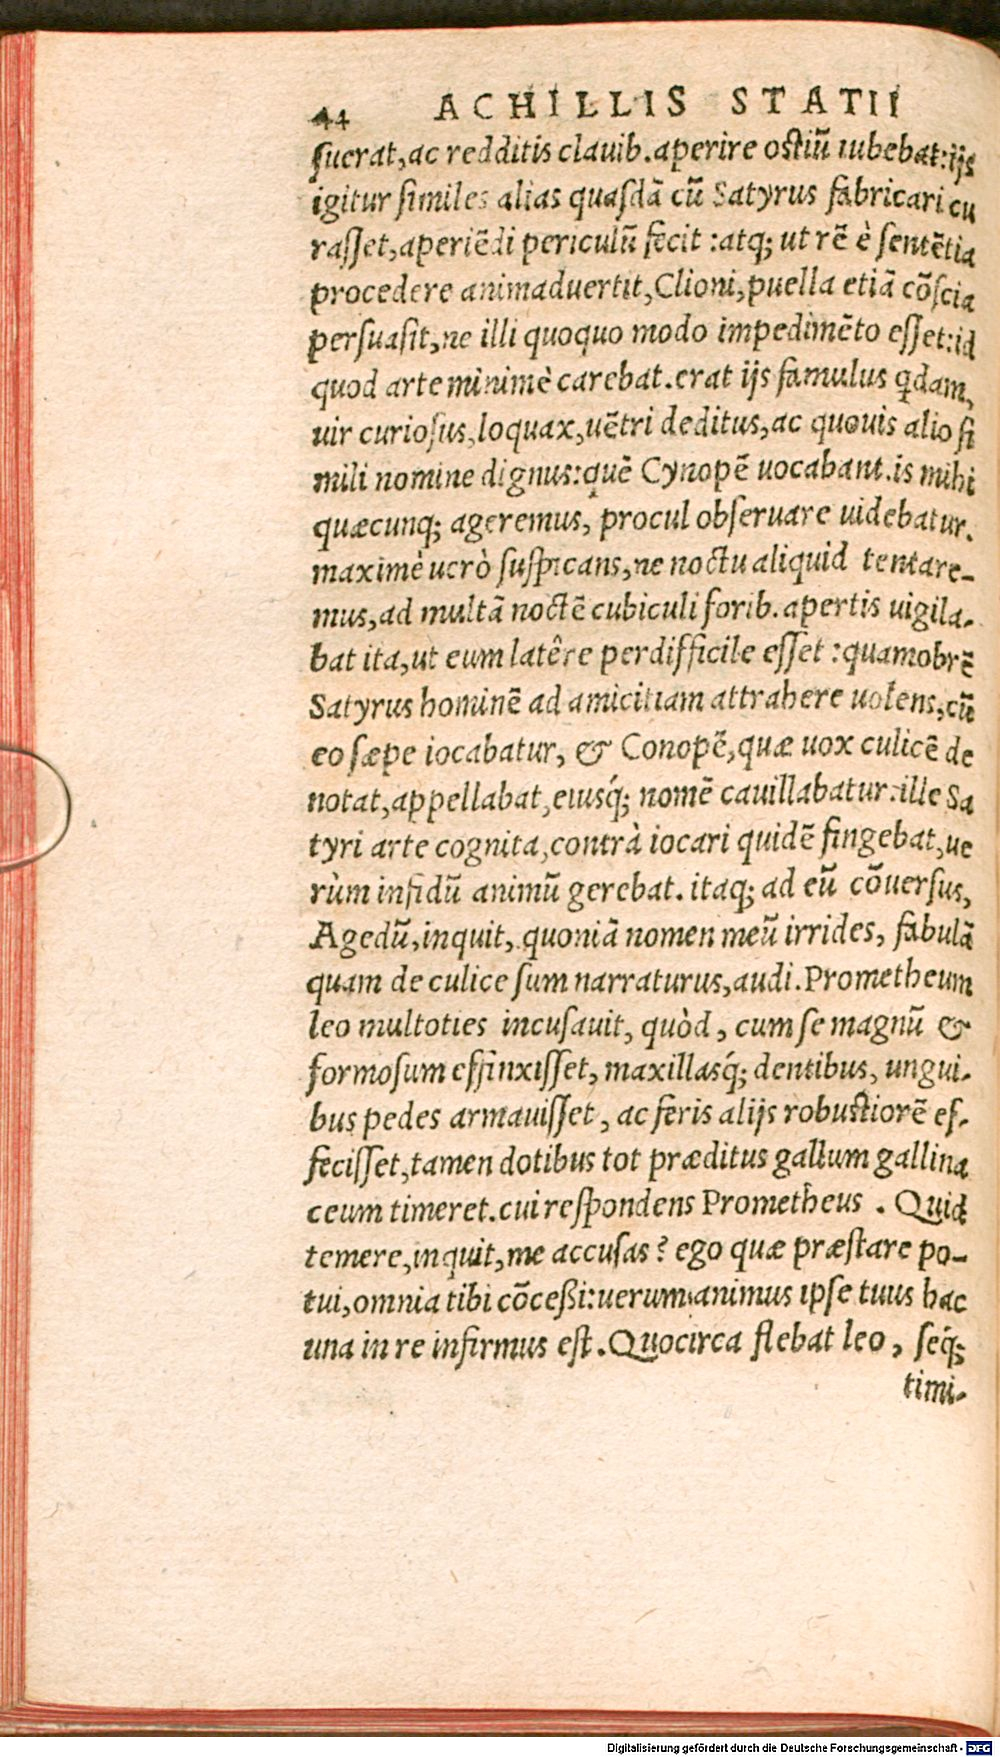 44 ACHILLIS STATII
ſuerat, ac redditis clauib. aperire oſtiū iubebat: ijs
igitur ſimiles alias quaſdā cū Satyrus fabricari cu
raſſet, aperiēdi periculū fecit: atq; ut rē è ſentētia
procedere animaduertit, Clioni, puella etiā cōſcia
perſuaſit, ne illi quoquo modo impedimēto eſſet: id
quod arte minimè carebat. erat ijs famulus qdam,
uir curioſus, loquax, uētri deditus, ac quouis alio ſi
mili nomine dignus: quē Cynopē uocabant. is mihi
quæcunq; ageremus, procul obſeruare uidebatur.
maximè uerò ſuſpicans, ne noctu aliquid tentare-
mus, ad multā noctē cubiculi forib. apertis uigila-
bat ita, ut eum latêre perdifficile eſſet: quamobrē
Satyrus hominē ad amicitiam attrahere uolens, cū
eo ſæpe iocabatur, & Conopē, quæ uox culicē de
notat, appellabat, eiusq́; nomē cauillabatur: ille Sa
tyri arte cognita, contrà iocari quidē fingebat, ue
rùm infidū animū gerebat. itaq; ad eū cōuerſus,
Agedū, inquit, quoniā nomen meū irrides, fabulā
quam de culice ſum narraturus, audi. Prometheum
leo multoties incuſauit, quòd, cum ſe magnū &
formoſum effinxiſſet, maxillasq́; dentibus, ungui-
bus pedes armauiſſet, ac feris alijs robuſtiorē ef-
feciſſet, tamen dotibus tot præditus gallum gallina
ceum timeret. cui reſpondens Prometheus. Quid
temere, inquit, me accuſas? ego quæ præſtare po-
tui, omnia tibi cōceßi: uerum animus ipſe tuus hac
una in re infirmus eſt. Quocirca flebat leo, ſeq́;
timi-
Digitalisierung gefördert durch die Deutsche Forschungsgemeinschaft - DFG